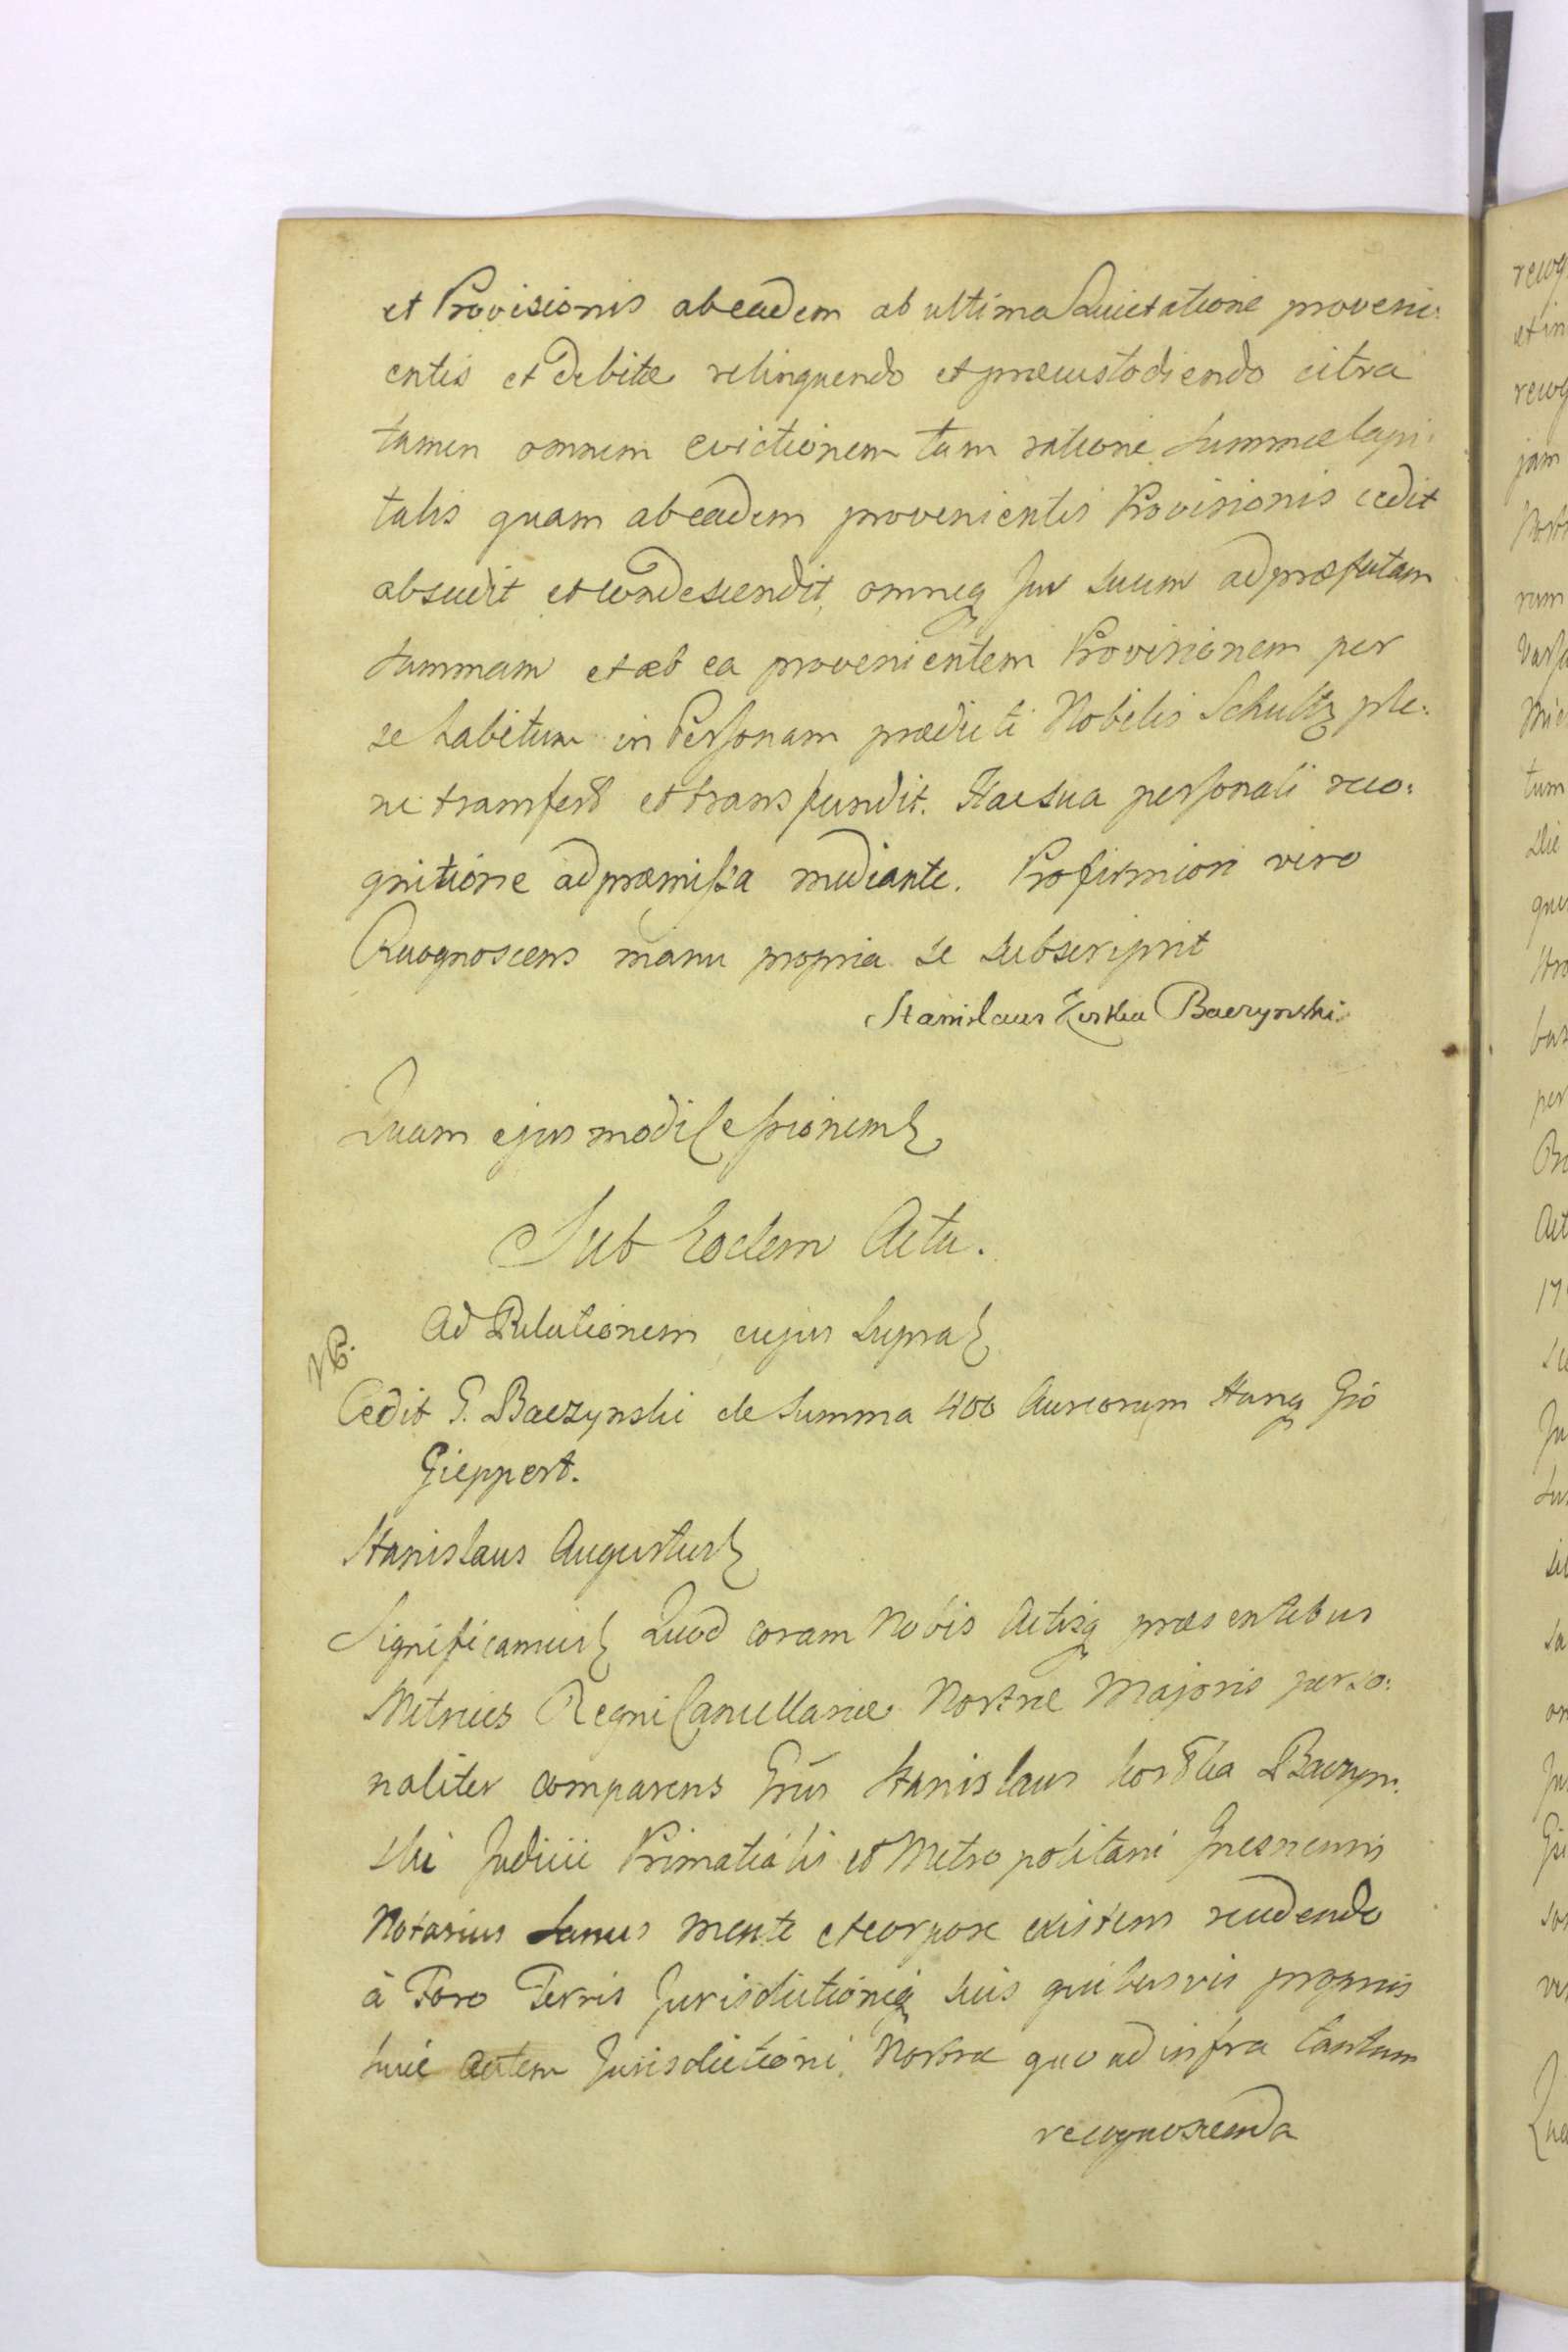 et Provisionis ab eadem ab ultima Quietatione proveni:
entis et debitæ relinquendo et præcustodiendo citra
tamen omnem evictionem tam ratione Summæ Capi:
talis quam ab eadem provenientis Provisionis cedit
abscedit et condescendit, omneq Jus suum ad præfatam
Summam et ab ea provenientem Provisionem per
se habitum in Personam prædicti Nobilis Schultz ple:
ne transfert et transfundit. Hac sua personali reco:
gnitione ad præmissa mediante. Pro firmiori vero
Recognoscens manu propria se subscripsit
Stanislaus Kostka Baczynski
Quam ejusmodi Cessionem
Sub Eodem Actu.
Ad Relationem cujus Supra
NB.
Cedit G. Baczynski de Summa 400 Aureorum Hung Gso
Gieppert.
Stanislaus Augustus
Significamus Quod coram Nobis Actisq præsentibus
Metrices Regni Cancellariæ Nostræ Majoris perso:
naliter comparens Grus Stanislaus Kostka Baczyn:
ski Judicii Primatialis et Metropolitani Gnesnensis
Notarius Sanus mente et corpore existens recedendo
à Foro Terris Jurisdictioneq suis quibusvis propriis
huic autem Jurisdictioni Nostræ quo ad infra tantum
recognoscenda